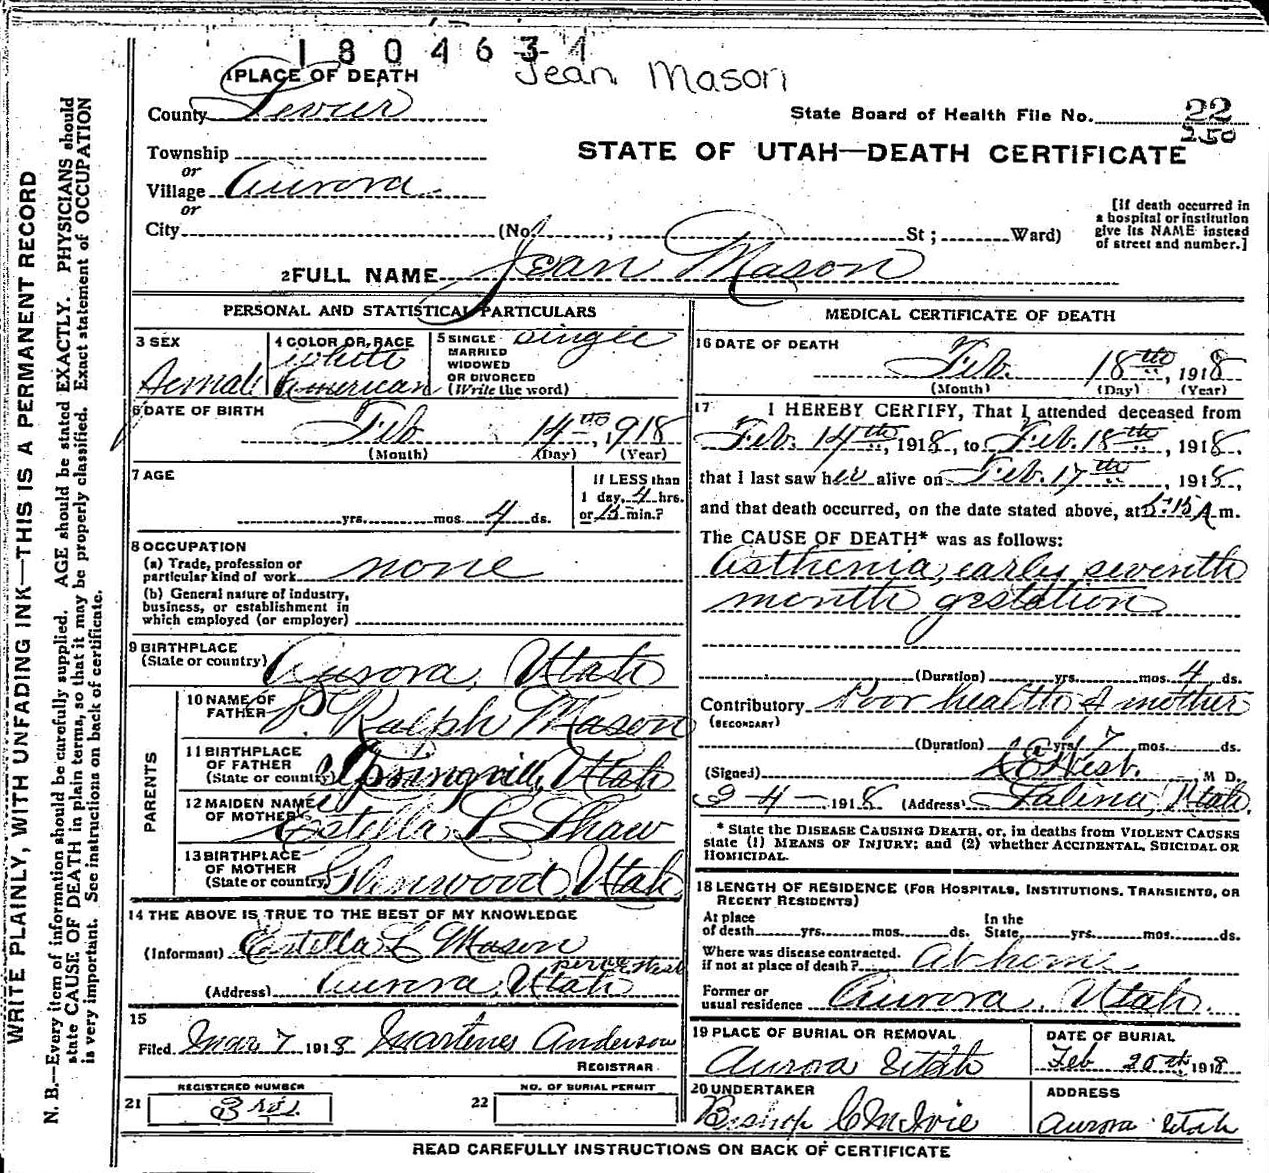 1804634
Jean Mason
1 PLACE OF DEATH
County Sevier
State Board of Health File No. 22
250
STATE OF UTAH—DEATH CERTIFICATE
Township
or
Village Aurora
or
City (No. , St ; Ward)
[If death occurred in
a hospital or institution
give its NAME instead
of street and number.]
2 FULL NAME Jean Mason
PERSONAL AND STATISTICAL PARTICULARS
3 SEX
Female
4 COLOR OR RACE
white
American
5 SINGLE
MARRIED
WIDOWED
OR DIVORCED
(Write the word)
single
6 DATE OF BIRTH
Feb 14th, 1918
(Month) (Day) (Year)
7 AGE
yrs. mos. 4 ds.
If LESS than
1 day, 4 hrs.
or 15 min.?
8 OCCUPATION
(a) Trade, profession or
particular kind of work none
(b) General nature of industry,
business, or establishment in
which employed (or employer)
9 BIRTHPLACE
(State or country) Aurora, Utah
PARENTS
10 NAME OF
FATHER P. Ralph Mason
11 BIRTHPLACE
OF FATHER
(State or country) Springville, Utah
12 MAIDEN NAME
OF MOTHER Estella L Shaw
13 BIRTHPLACE
OF MOTHER
(State or country) Glenwood, Utah
14 THE ABOVE IS TRUE TO THE BEST OF MY KNOWLEDGE
(Informant) Estella L Mason
(Address) Aurora, Utah
15
Filed Mar 7 1918 Martenus Anderson
REGISTRAR
REGISTERED NUMBER
21
NO. OF BURIAL PERMIT
22
MEDICAL CERTIFICATE OF DEATH
16 DATE OF DEATH
Feb. 18th, 1918
(Month) (Day) (Year)
17 I HEREBY CERTIFY, That I attended deceased from
Feb. 14th, 1918, to Feb. 18th, 1918.
that I last saw her alive on Feb. 17th, 1918,
and that death occurred, on the date stated above, at 5:15 A m.
The CAUSE OF DEATH* was as follows:
Asthenia, early seventh
month gestation
(Duration) yrs. mos. 4 ds.
Contributory Poor health of mother
(SECONDARY)
(Duration) yrs. 7 mos. ds.
(Signed) West. M D.
3-4-1918 (Address) Salina, Utah.
* State the DISEASE CAUSING DEATH, or, in deaths from VIOLENT CAUSES
state (1) MEANS OF INJURY; and (2) whether ACCIDENTAL, SUICIDAL OR
HOMICIDAL.
18 LENGTH OF RESIDENCE (FOR HOSPITALS, INSTITUTIONS, TRANSIENTS, OR
RECENT RESIDENTS)
At place
of death yrs. mos. ds.
In the
State yrs. mos. ds.
Where was disease contracted.
if not at place of death? At home
Former or
usual residence Aurora, Utah.
19 PLACE OF BURIAL OR REMOVAL
Aurora Utah
DATE OF BURIAL
Feb 20th 1918
20 UNDERTAKER
Bishop C McIvie
ADDRESS
Aurora Utah
READ CAREFULLY INSTRUCTIONS ON BACK OF CERTIFICATE
WRITE PLAINLY, WITH UNFADING INK—THIS IS A PERMANENT RECORD
N. B.—Every item of information should be carefully supplied. AGE should be stated EXACTLY. PHYSICIANS should
state CAUSE OF DEATH in plain terms, so that it may be properly classified. Exact statement of OCCUPATION
is very important. See instructions on back of certificate.